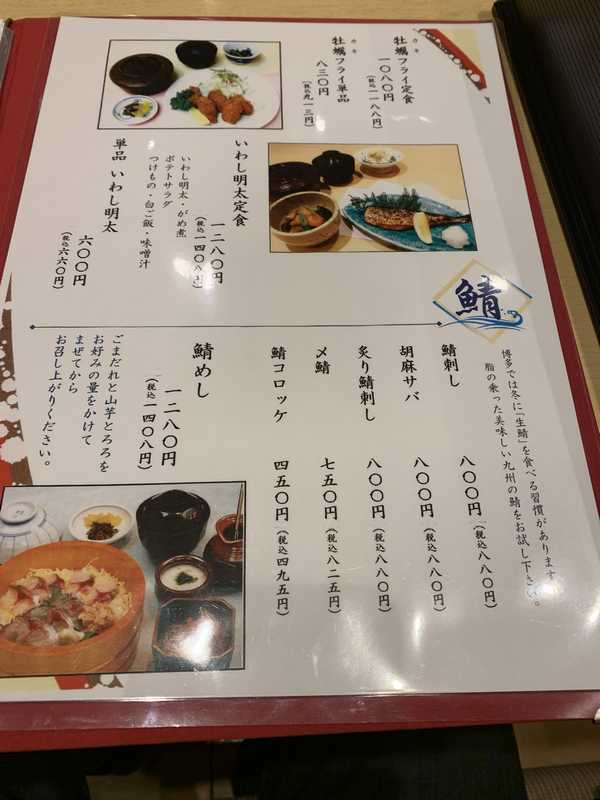 カキ
牡蠣フライ定食
一〇八〇円
（税込一一八八円）
カキ
牡蠣フライ単品
八三〇円
（税込九一三円）
いわし明太定食
一二八〇円
（税込一四〇八円）
いわし明太・がめ煮
ポテトサラダ
つけもの・白ご飯・味噌汁
単品 いわし明太
六〇〇円
（税込六六〇円）
鯖
博多では冬に「生鯖」を食べる習慣があります
脂の乗った美味しい九州の鯖をお試し下さい。
鯖刺し 八〇〇円（税込八八〇円）
胡麻サバ 八〇〇円（税込八八〇円）
炙り鯖刺し 八〇〇円（税込八八〇円）
〆鯖 七五〇円（税込八二五円）
鯖コロッケ 四五〇円（税込四九五円）
鯖めし
一二八〇円
（税込一四〇八円）
ごまだれと山芋とろろを
お好みの量をかけて
まぜてから
お召し上がりください。